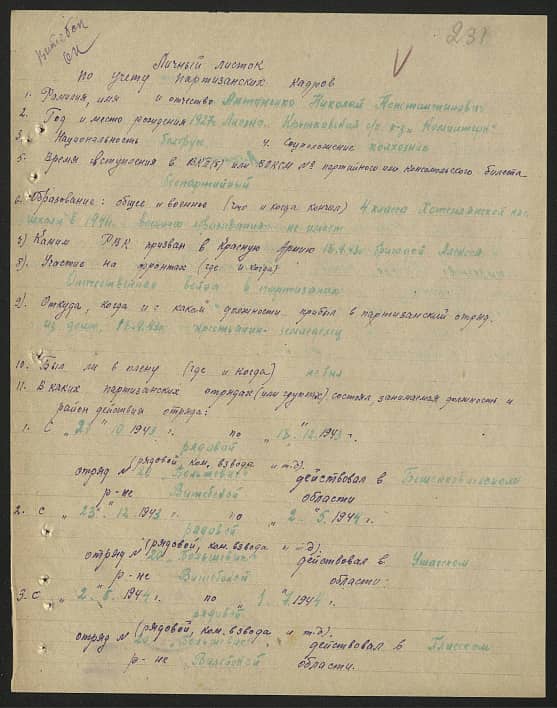 Витебск
231
Личный листок
по учету партизанских кадров
1. Фамилия, имя и отчество Антоненко Николай Константинович
2. Год и место рождения 1927г.
3. Национальность белорус 4. Соцположение колхозник
5. Время вступления в ВКП(б) или ВЛКСМ № партийного или комсомольского билета
беспартийный
6. Образование: общее и военное (что и когда кончил) 4 класса
школы в 1941г. военного образования не имеет
7) Каким РВК призван в Красную Армию
8). Участие на фронтах (где и когда)
Отечественная война в партизанах
9). Откуда, когда и с какой должности прибыл в партизанский отряд.
из дому, крестьянин-земледелец
10. Был ли в плену (где и когда) не был
11. В каких партизанских отрядах (или группах) состоял, занимаемая должность и
район действия отряда:
1. С „21" 10 1943 г. по „18". 12. 1943 г.
рядовой
(рядовой, ком. взвода и т.д.)
отряд № 20 „Большевик" действовал в Бешенковичском
р-не Витебской области
2. с „23". 12. 1943 г. по „2". 5. 1944 г.
рядовой
(рядовой, ком. взвода и т.д.)
отряд № 20 „Большевик" действовал в Ушачском
р-не Витебской области.
3. С „2". 5. 1944 г. по „1". 7 1944 г.
рядовой
(рядовой, ком. взвода и т.д.)
отряд № 20 „Большевик" действовал в Плисском
р-не Вилейской области.